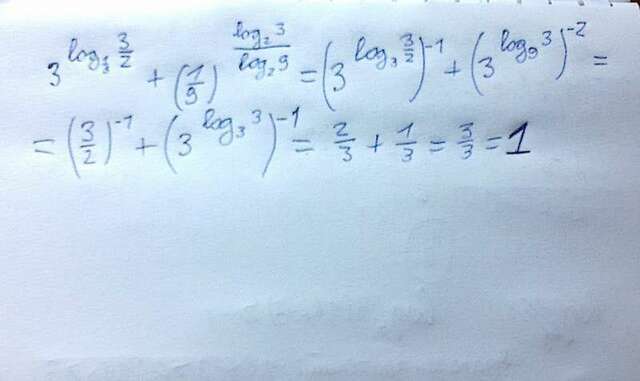 3^{log_{\frac{1}{3}} \frac{3}{2}} + (\frac{1}{9})^{\frac{log_2 3}{log_2 9}} = (3^{log_3 \frac{3}{2}})^{-1} + (3^{log_9 3})^{-2} =
= (\frac{3}{2})^{-1} + (3^{log_3 3})^{-1} = \frac{2}{3} + \frac{1}{3} = \frac{3}{3} = 1